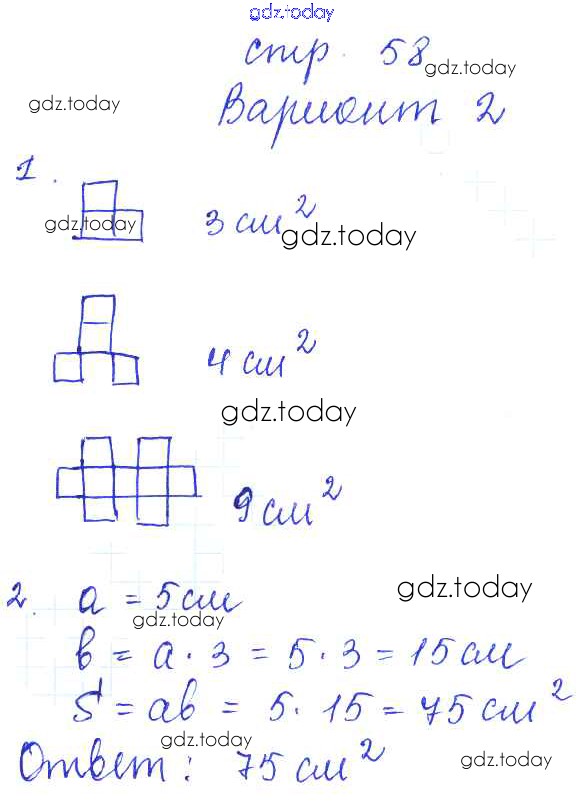 gdz.today
стр. 58
gdz.today
gdz.today
Вариант 2
1.
gdz.today
3 см²
gdz.today
4 см²
gdz.today
9 см²
gdz.today
2. a = 5 см
gdz.today
b = a · 3 = 5 · 3 = 15 см
S = ab = 5 · 15 = 75 см²
gdz.today
Ответ: 75 см²
gdz.today